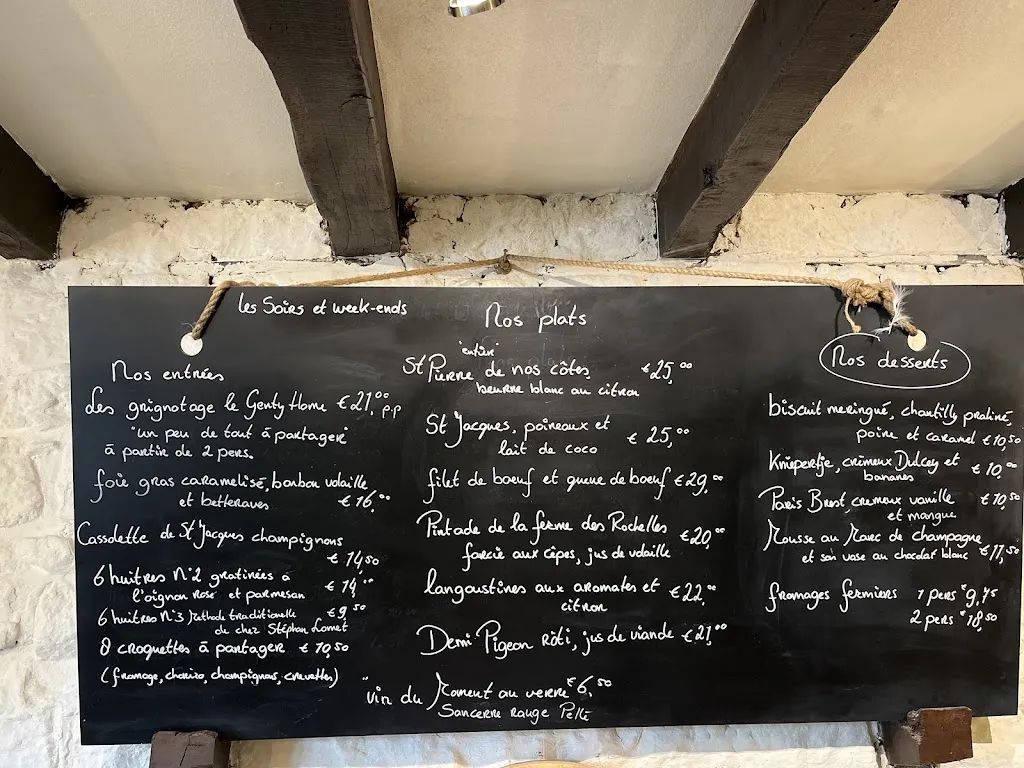 les Soirs et week-ends
Nos entrées
Les grignotage le Genty Home €21,00 p.p
"un peu de tout à partager"
à partir de 2 pers.
foie gras caramelisé, bonbon volaille
et betteraves €16,00
Cassolette de St Jacques champignons
€ 14,50
6 huitres N°2 gratinées à
l'oignon rosé et parmesan € 14,00
6 huitres N°3 Methode traditionelle € 9,50
de chez Stéphan
8 croquettes à partager € 10,50
(fromage, chorizo, champignons, crevettes)
Nos plats
"entier"
St Pierre de nos côtes €25,00
beurre blanc au citron
St Jacques, poireaux et
lait de coco € 25,00
filet de boeuf et queue de boeuf €29,00
Pintade de la ferme des Rochelles
farcie aux cèpes, jus de volaille €20,00
langoustines aux aromates et €22,00
citron
Demi Pigeon rôti, jus de viande €21,00
"vin du Moment au verre" €6,50
Sancerre rouge Pellé
Nos desserts
biscuit meringué, chantilly praliné,
poire et caramel €10,50
Kniepertje, crèmeux Dulcey et € 10,00
bananes
Paris Brest, cremeux vanille € 10,50
et mangue
Mousse au Marc de champagne
et son vase au chocolat blanc €11,50
fromages fermiers 1 pers €9,75
2 pers €18,50